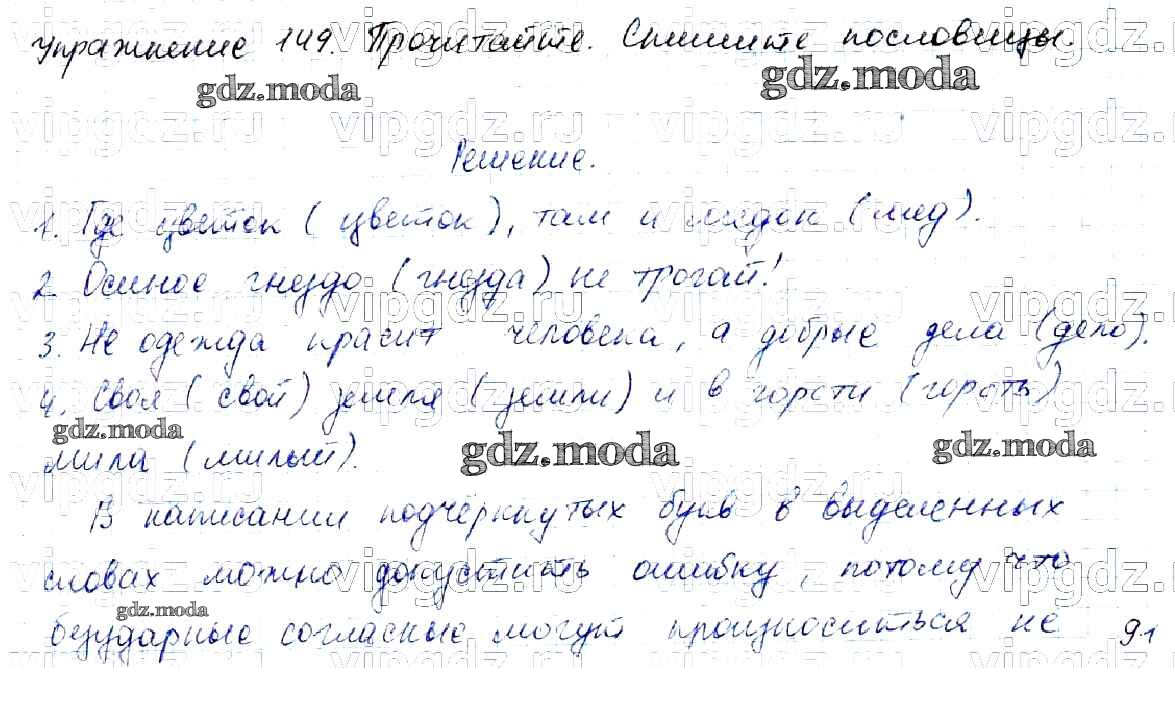 Упражнение 149. Прочитайте. Спишите пословицы.
gdz.moda gdz.moda
vipgdz.ru vipgdz.ru vipgdz.ru vipgdz.
Решение.
1. Где цветок (цветок), там и медок (мёд).
2. Осиное гнездо (гнёзда) не трогай!
3. Не одежда красит человека, а добрые дела (дело).
4. Своя (свой) земля (земли) и в горсти (горсть)
gdz.moda gdz.moda gdz.moda
мила (милый).
В написании подчёркнутых букв в выделенных
словах можно допустить ошибку, потому что
gdz.moda
безударные согласные могут произноситься не 91